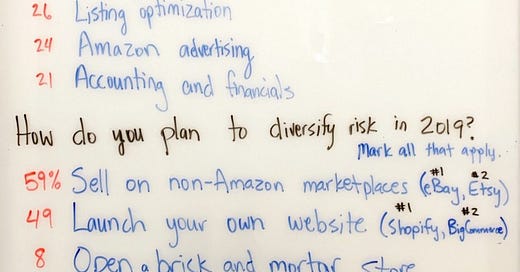 26 Listing optimization
24 Amazon advertising
21 Accounting and financials
How do you plan to diversify risk in 2019?
Mark all that apply.
59% Sell on non-Amazon marketplaces (#1 eBay, #2 Etsy)
49 Launch your own website (#1 Shopify, #2 BigCommerce)
8 Open a brick and mortar store